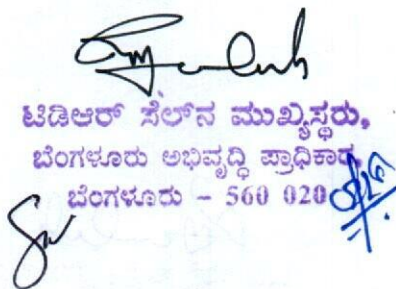 ಟಿಡಿಆರ್ ಸೆಲ್‌ನ ಮುಖ್ಯಸ್ಥರು,
ಬೆಂಗಳೂರು ಅಭಿವೃದ್ಧಿ ಪ್ರಾಧಿಕಾರ
ಬೆಂಗಳೂರು – 560 020